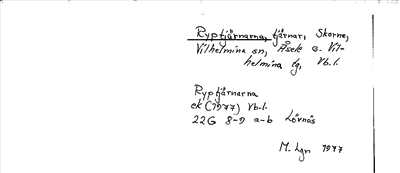 Ryptjärnarna, tjärnar, Skorne,
Vilhelmina sn, Åsele o. Vil-
helmina tg, Vb.l.
Ryptjärnarna
ek (1977) Vb.l.
22G 8-9 a-b Lövnäs
M. Lgn 1977